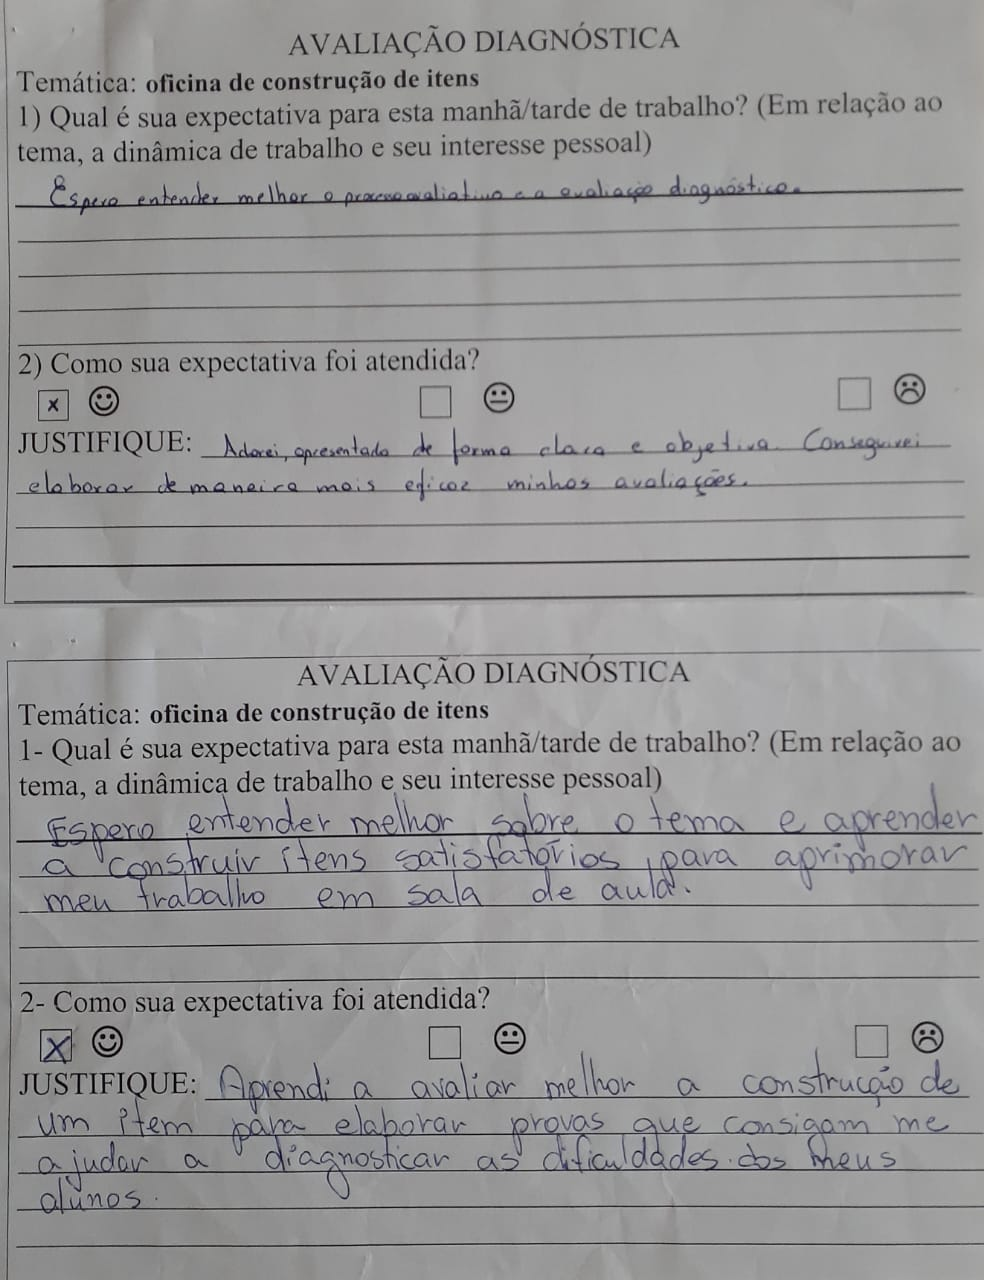 AVALIAÇÃO DIAGNÓSTICA
Temática: oficina de construção de itens
1) Qual é sua expectativa para esta manhã/tarde de trabalho? (Em relação ao
tema, a dinâmica de trabalho e seu interesse pessoal)
Espero entender melhor o processo avaliativo e a avaliação diagnóstica.
2) Como sua expectativa foi atendida?
x
JUSTIFIQUE: Adorei, apresentada de forma clara e objetiva. Conseguirei
elaborar de maneira mais eficaz minhas avaliações.
AVALIAÇÃO DIAGNÓSTICA
Temática: oficina de construção de itens
1- Qual é sua expectativa para esta manhã/tarde de trabalho? (Em relação ao
tema, a dinâmica de trabalho e seu interesse pessoal)
Espero entender melhor sobre o tema e aprender
a construir itens satisfatórios, para aprimorar
meu trabalho em sala de aula.
2- Como sua expectativa foi atendida?
X
JUSTIFIQUE: Aprendi a avaliar melhor a construção de
um item para elaborar provas que consigam me
ajudar a diagnosticar as dificuldades dos meus
alunos.